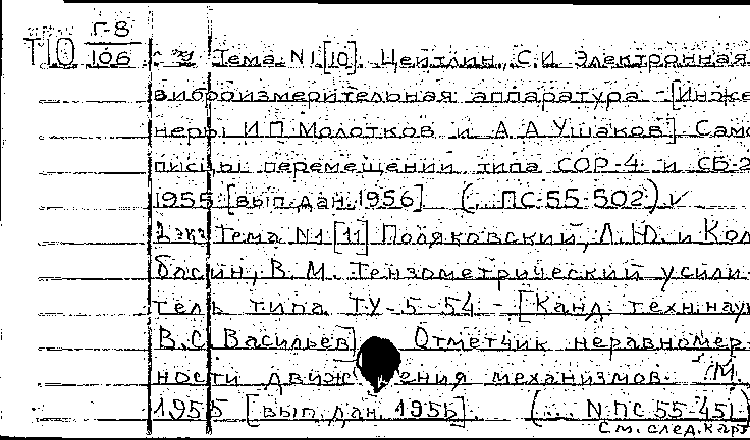 Т10 Г-8
106
Тема N1 [10]. Цейтлин, С.И. Электронная
виброизмерительная аппаратура - [Инже
неры И.П.Молотков и А.А.Ушаков] Само
писцы перемещений типа СОР-4 и СБ-2
1955 [вып.дан.1956] (... ПС-55-502) V
2 экз Тема N1 [11] Поляковский, Л.Ю. и Кол
басин, В.М. Тензометрический усили
тель типа ТУ-5-54 - [Канд. техн.наук
В.С.Васильев] Отметчик неравномер
ности движения механизмов. М.
1955 [вып.дан. 1955]. (... N ПС 55-451)
См. след.карт